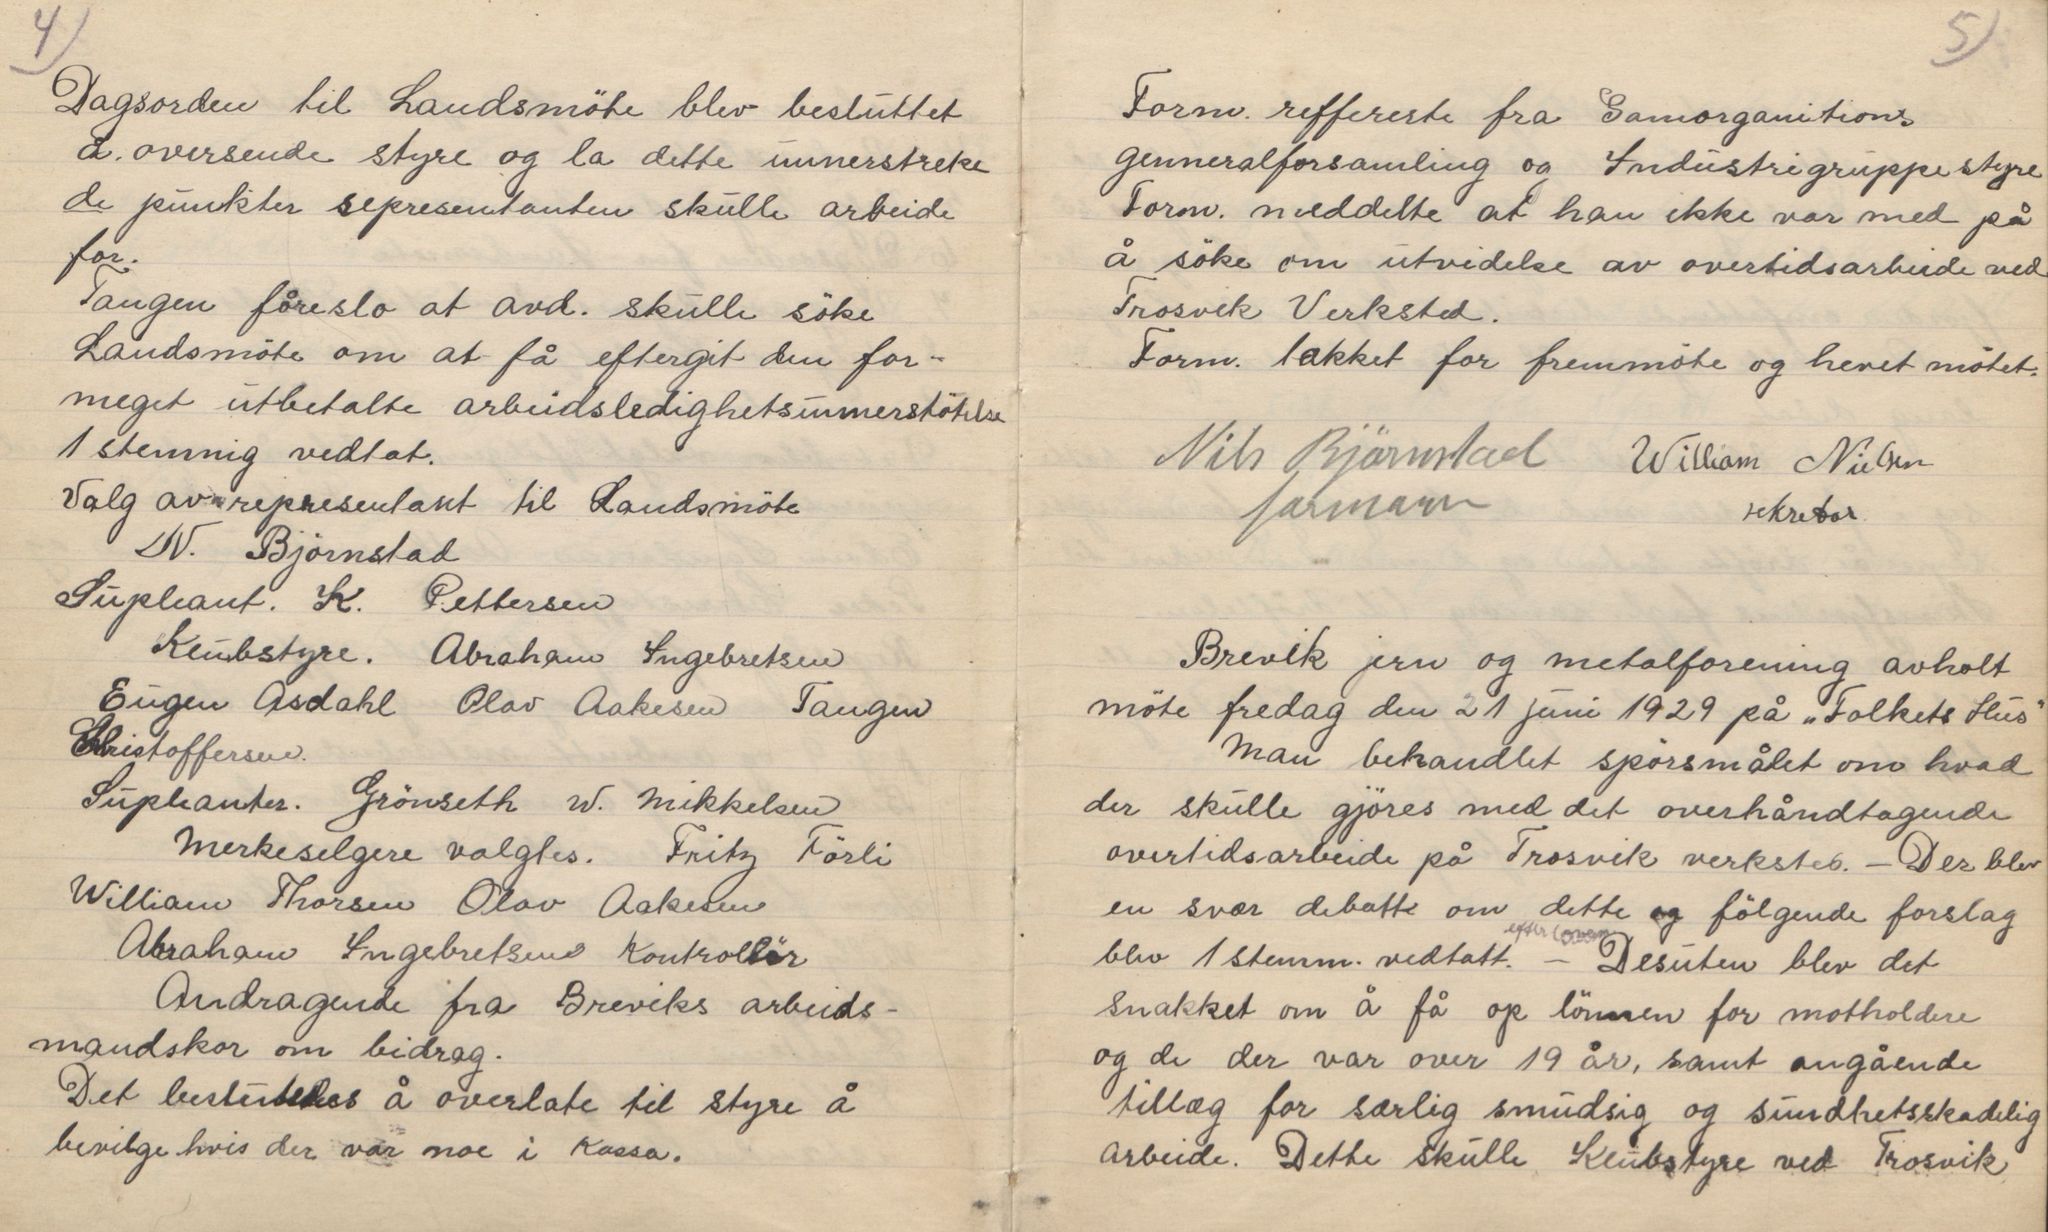 4)
Dagsorden til Landsmöte blev besluttet
å. oversende styre og la dette unnerstreke
de punkter representanten skulle arbeide
for.
Tangen föreslo at avd. skulle söke
Landsmöte om at få eftergit den for-
meget utbetalte arbeidsledighetsunnerstötelse
1 stemmig vedtat.
Valg av representant til Landsmöte
N. Björnstad
Supleant. K. Pettersen
Klubstyre. Abraham Ingebretsen
Eugen Asdahl Olav Aakesen Tangen
Christoffersen.
Supleanter. Grönseth W. Mikkelsen
Merkeselgere valgtes. Fritz Förli
William Thorsen Olav Aakesen
Abraham Ingebretsen Kontrollör
Andragende fra Breviks arbeids-
mandskor om bidrag.
Det besluttedes å overlate til styre å
bevilge hvis der var noe i Kassa.
5)
Form. reffererte fra Samorganitions
genneralforsamling og Industrigruppestyre
Form. meddelte at han ikke var med på
å söke om utvidelse av overtidsarbeide ved
Trosvik Verksted.
Form. takket for fremmöte og hevet mötet.
Nils Björnstad William Nielsen
formann sekretær
Brevik jern og metalforening avholt
möte fredag den 21 juni 1929 på „Folkets Hus"
Man behandlet spörsmålet om hvad
der skulle gjöres med det overhåndtagende
overtidsarbeide på Trosvik verksted. – Der blev
en svær debatt om dette og fölgende forslag
efter loven
blev 1 stemm. vedtatt. – Desuten blev det
snakket om å få op lönnen for motholdere
og de der var over 19 år, samt angående
tillæg for særlig smudsig og sundhetsskadelig
arbeide. Dette skulle Klubstyre ved Trosvik